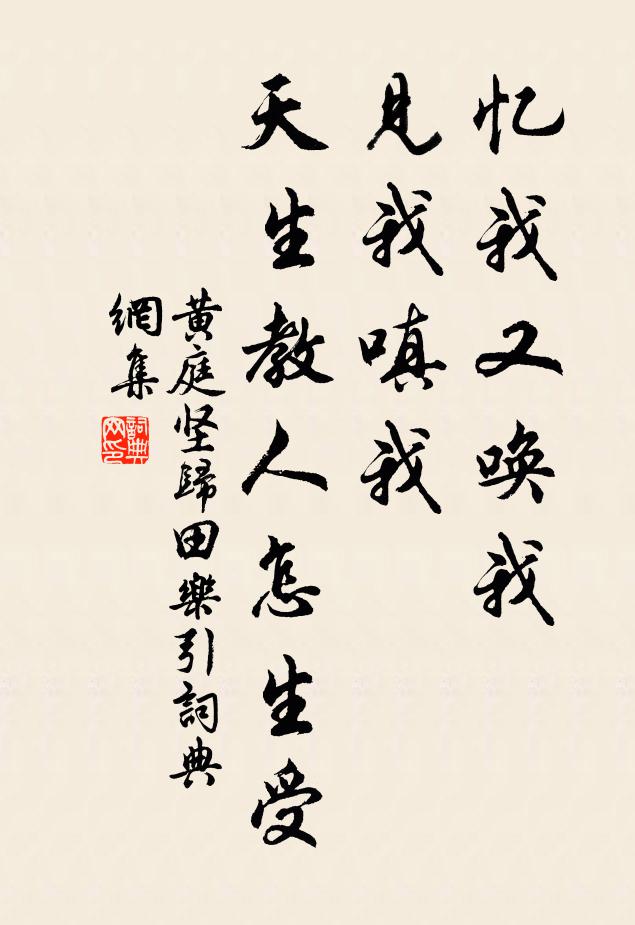 忆我又唤我
见我嗔我
天生教人怎生受
黄庭坚歸田樂引詞典
網集
詞典
网印